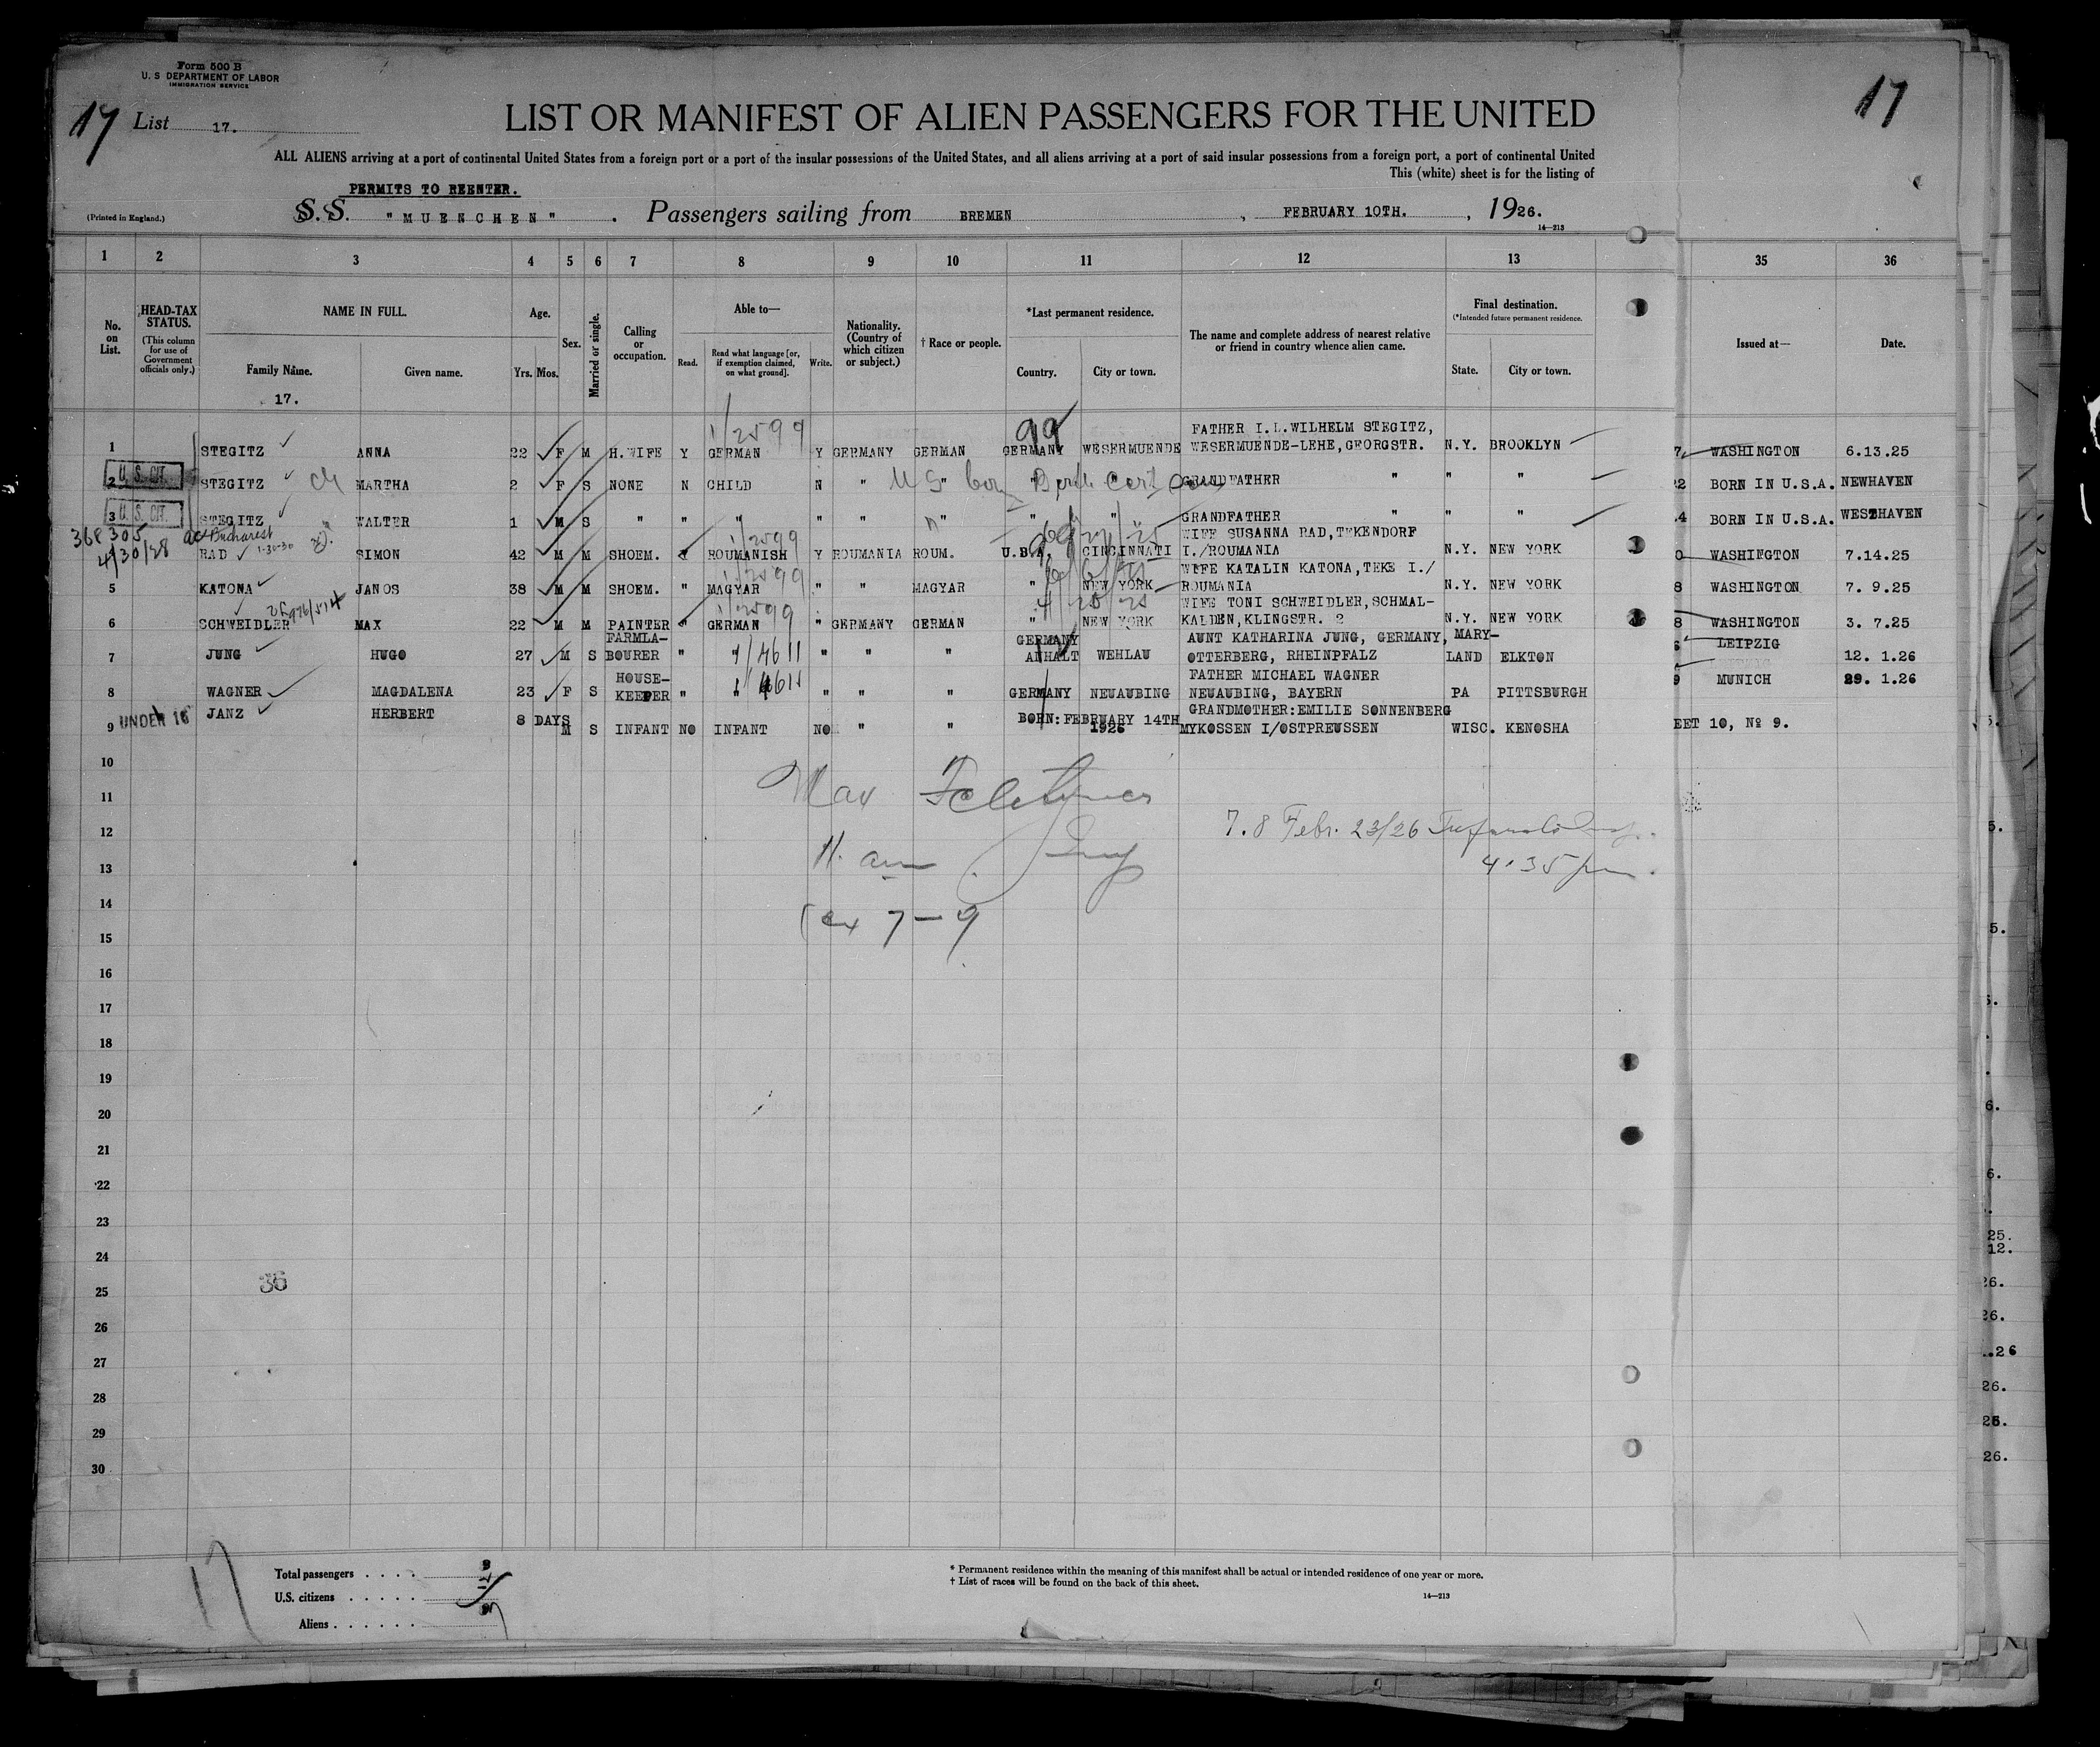 Form 500 B
U. S DEPARTMENT OF LABOR
IMMIGRATION SERVICE
17 List 17. LIST OR MANIFEST OF ALIEN PASSENGERS FOR THE UNITED 17
ALL ALIENS arriving at a port of continental United States from a foreign port or a port of the insular possessions of the United States, and all aliens arriving at a port of said insular possessions from a foreign port, a port of continental United
This (white) sheet is for the listing of
PERMITS TO REENTER.
(Printed in England.) S. S. "MUENCHEN". Passengers sailing from BREMEN, FEBRUARY 10TH., 1926.
14—213
1 2 3 4 5 6 7 8 9 10 11 12 13 35 36
No. on List. HEAD-TAX STATUS. (This column for use of Government officials only.) NAME IN FULL. Family Name. Given name. Age. Yrs. Mos. Sex. Married or single. Calling or occupation. Able to— Read. Read what language [or, if exemption claimed, on what ground]. Write. Nationality. (Country of which citizen or subject.) † Race or people. *Last permanent residence. Country. City or town. The name and complete address of nearest relative or friend in country whence alien came. Final destination. (*Intended future permanent residence. State. City or town. Issued at— Date.
17.
1/2599 99 FATHER I.L.WILHELM STEGITZ,
1 STEGITZ ANNA 22 F M H.WIFE Y GERMAN Y GERMANY GERMAN GERMANY WESERMUENDE WESERMUENDE-LEHE,GEORGSTR. N.Y. BROOKLYN 7 WASHINGTON 6.13.25
2 U.S. CIT. STEGITZ ch MARTHA 2 F S NONE N CHILD N " US born " Birth Cert " GRANDFATHER " " " 22 BORN IN U.S.A. NEWHAVEN
3 U.S. CIT. STEGITZ WALTER 1 M S " " " " " " " " GRANDFATHER " " " .4 BORN IN U.S.A. WESTHAVEN
368305 Bucharest 1/2599 WIFE SUSANNA RAD,TEKENDORF
4/30/28 1-30-30 RAD SIMON 42 M M SHOEM. Y ROUMANISH Y ROUMANIA ROUM. U.S.A. CINCINNATI I./ROUMANIA N.Y. NEW YORK 0 WASHINGTON 7.14.25
1/2599 WIFE KATALIN KATONA,TEKE I./
5 KATONA JANOS 38 M M SHOEM. " MAGYAR " " MAGYAR " NEW YORK ROUMANIA N.Y. NEW YORK 8 WASHINGTON 7. 9.25
1/2599 WIFE TONI SCHWEIDLER,SCHMAL-
6 SCHWEIDLER MAX 22 M M PAINTER " GERMAN " GERMANY GERMAN " NEW YORK KALDEN,KLINGSTR. 2 N.Y. NEW YORK 8 WASHINGTON 3. 7.25
FARMLA- GERMANY AUNT KATHARINA JUNG, GERMANY, MARY- LEIPZIG
7 JUNG HUGO 27 M S BOURER " " 1/4611 " " " ANHALT WEHLAU OTTERBERG, RHEINPFALZ LAND ELKTON 12. 1.26
HOUSE- FATHER MICHAEL WAGNER
8 WAGNER MAGDALENA 23 F S KEEPER " " 4611 " " " GERMANY NEUAUBING NEUAUBING, BAYERN PA PITTSBURGH 9 MUNICH 29. 1.26
UNDER 16 JANZ HERBERT 8 DAYS BORN:FEBRUARY 14TH GRANDMOTHER:EMILIE SONNENBERG
9 M S INFANT NO INFANT NO " " 1926 MYKOSSEN I/OSTPREUSSEN WISC. KENOSHA EET 10, No 9.
10
11 Max
12 7.8 Febr. 23/26
13 4.35 pm.
14
(ex 7-9
15
16
17
18
19
20
21
22
23
24
36
25
26
27
28
29
30
17
Total passengers . . . . 9
U.S. citizens . . . . .
Aliens . . . . . .
* Permanent residence within the meaning of this manifest shall be actual or intended residence of one year or more.
† List of races will be found on the back of this sheet.
14—213